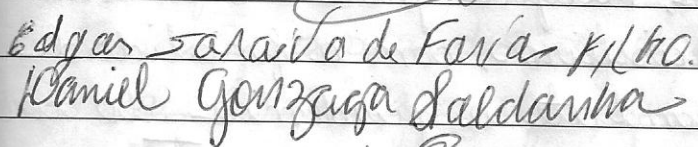 Edgar Saraiva de Faria Filho.
Daniel Gonzaga Saldanha